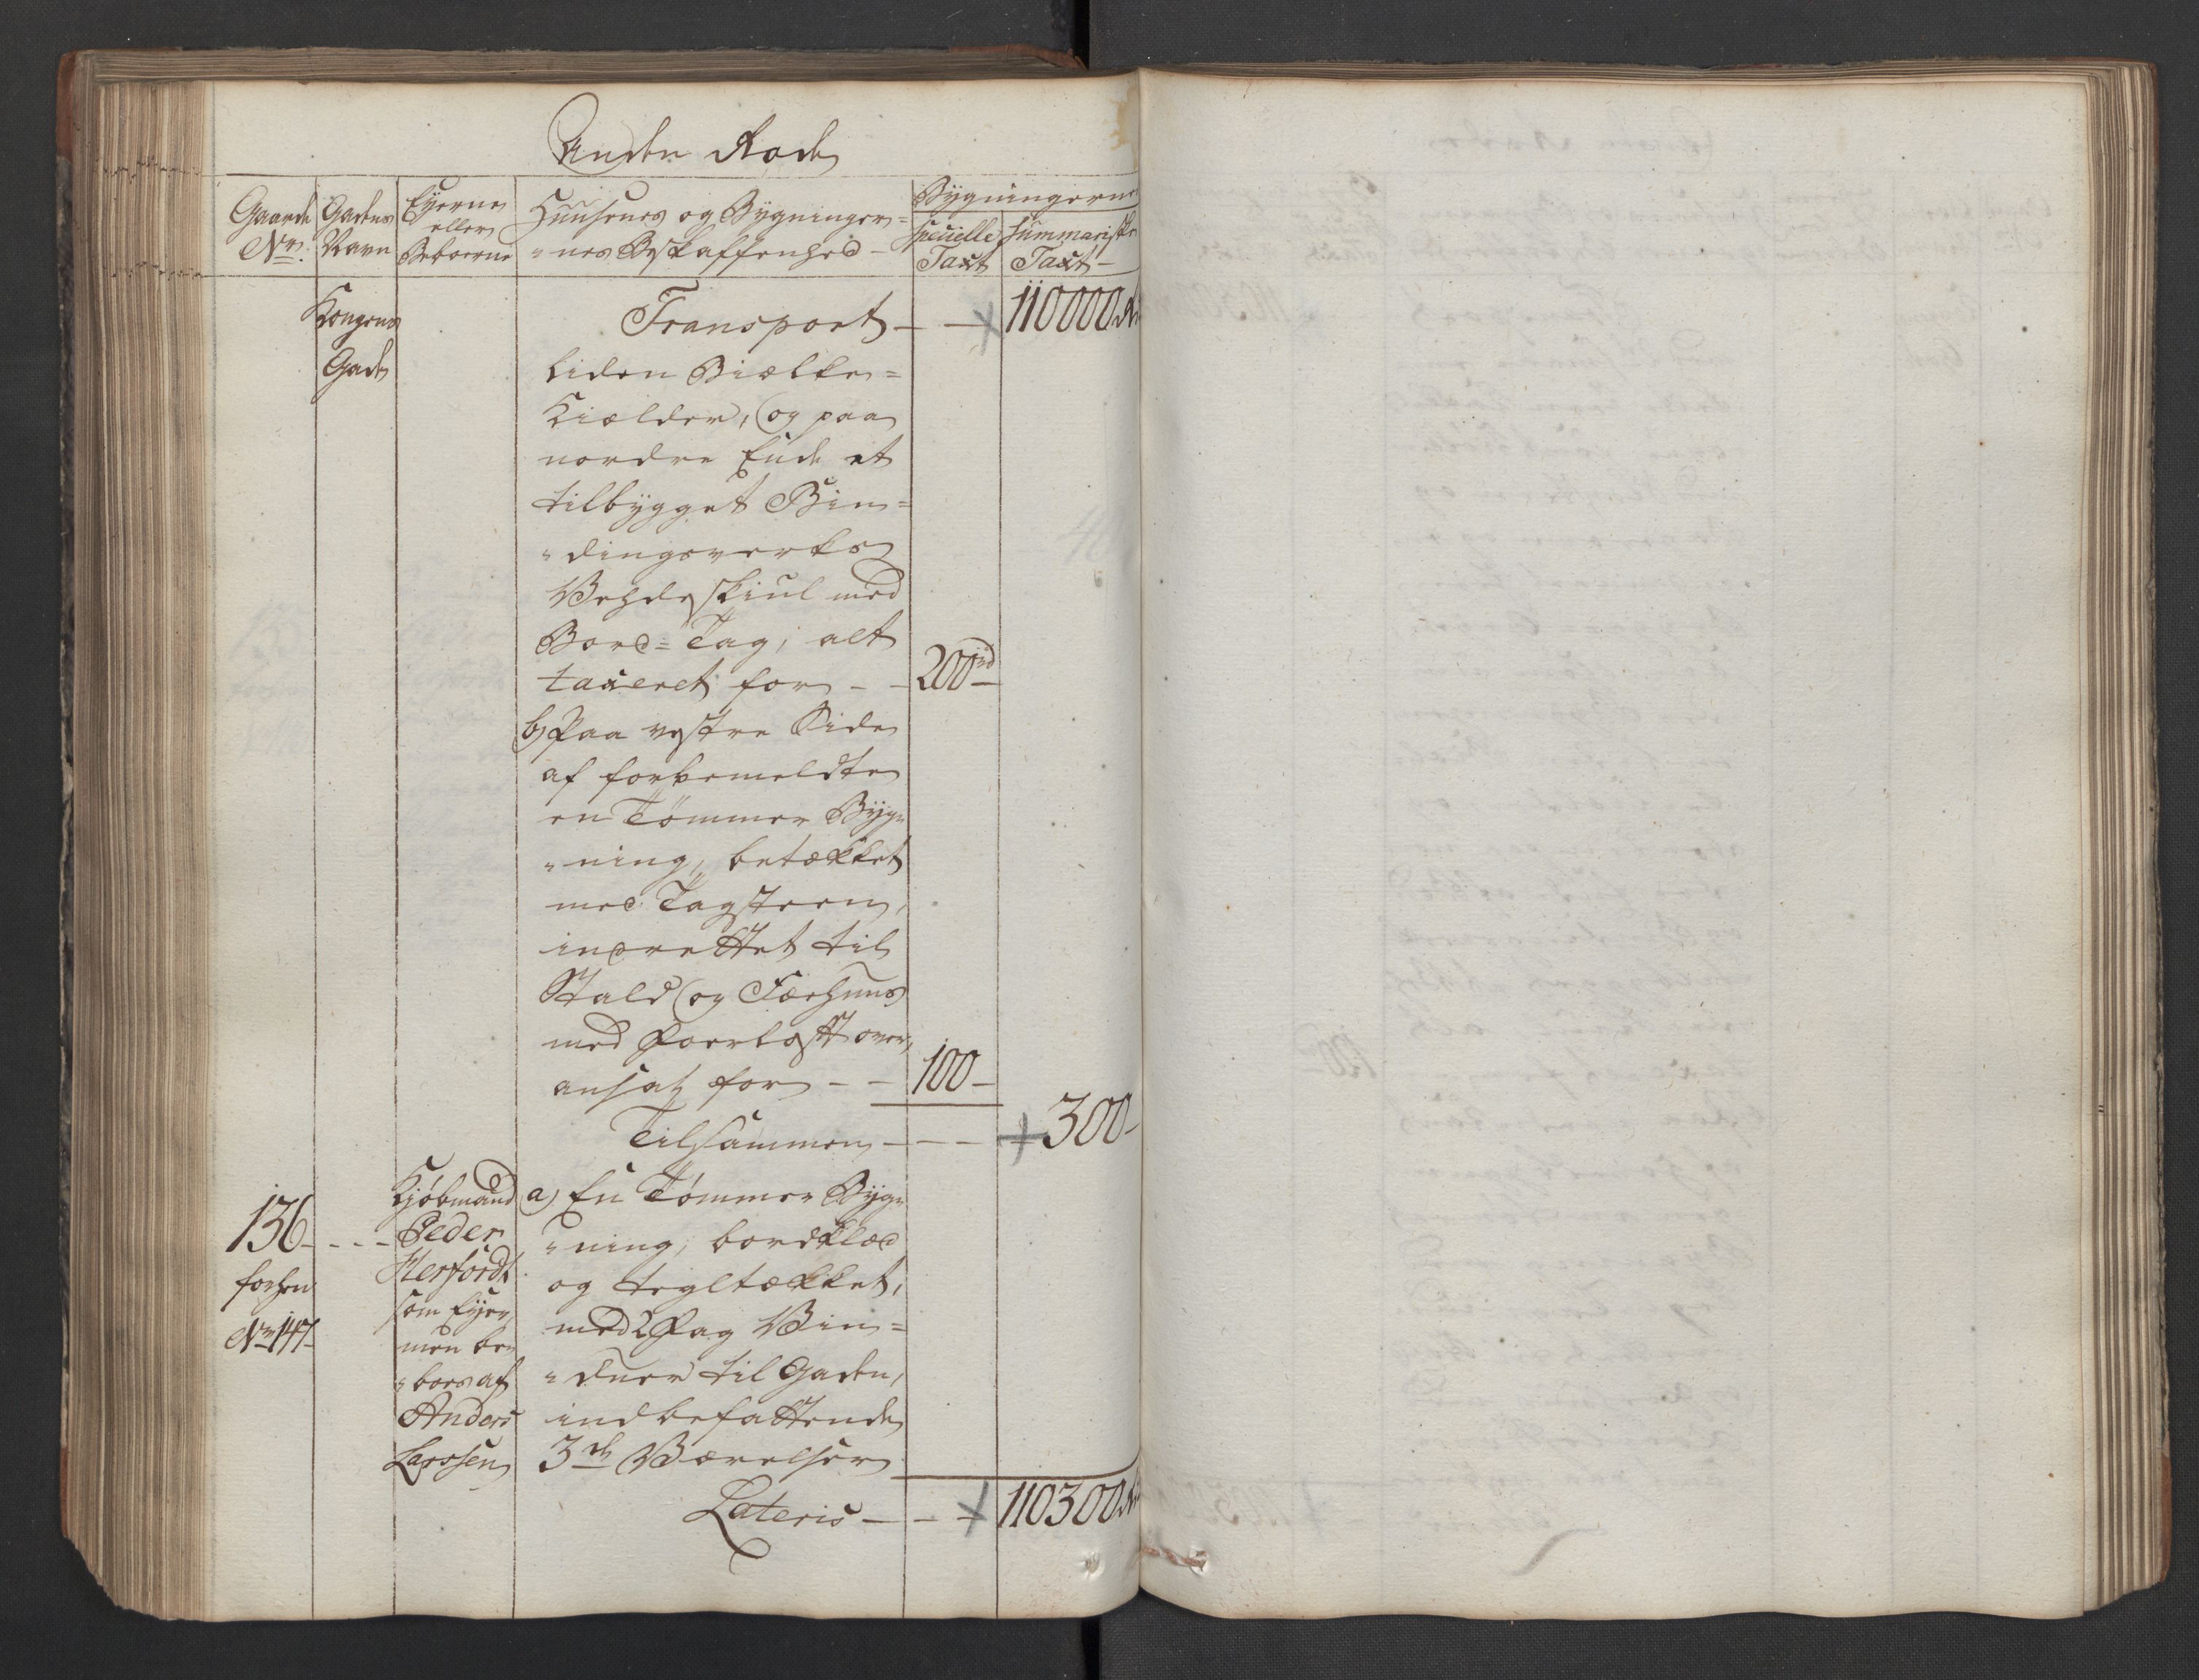 Anden Rode
Gaarde Nr:
Gadens Navn
Eyerne eller Beboerne
Huusenes og Bygninger=
"nes Beskaffenhed -
Bygningerne
specielle Taxt
summariske Taxt -
Kongens
Gade
Transport - - 110000 rd
liden Bielke=
Kielder, og paa
nordre Ende et
tilbygget Bin=
"dingsverks
Vehdeskiul med
Bord=Tag; alt
taxeret for - - 200 rd
b) Paa vestre Side
af forbemeldte
en Tømmer Byg=
"ning, betækket
med Tagsteen,
indrettet til
Stald og Fæehuus
med Foerloftt over,
ansat for - - 100 -
Tilsammen - - - 300 -
136 - - - -
forhen
No 147
Kjøbmand
Peder
Herfordt
som Eyer,
men be=
"boes af
Anders
Larssen
a) En Tømmer Byg=
"ning, bordklæd
og tegltækket,
med 2 Fag Vin=
"duer til Gaden,
indbefattende
3de Værelser
Lateris - - - 110300 rd